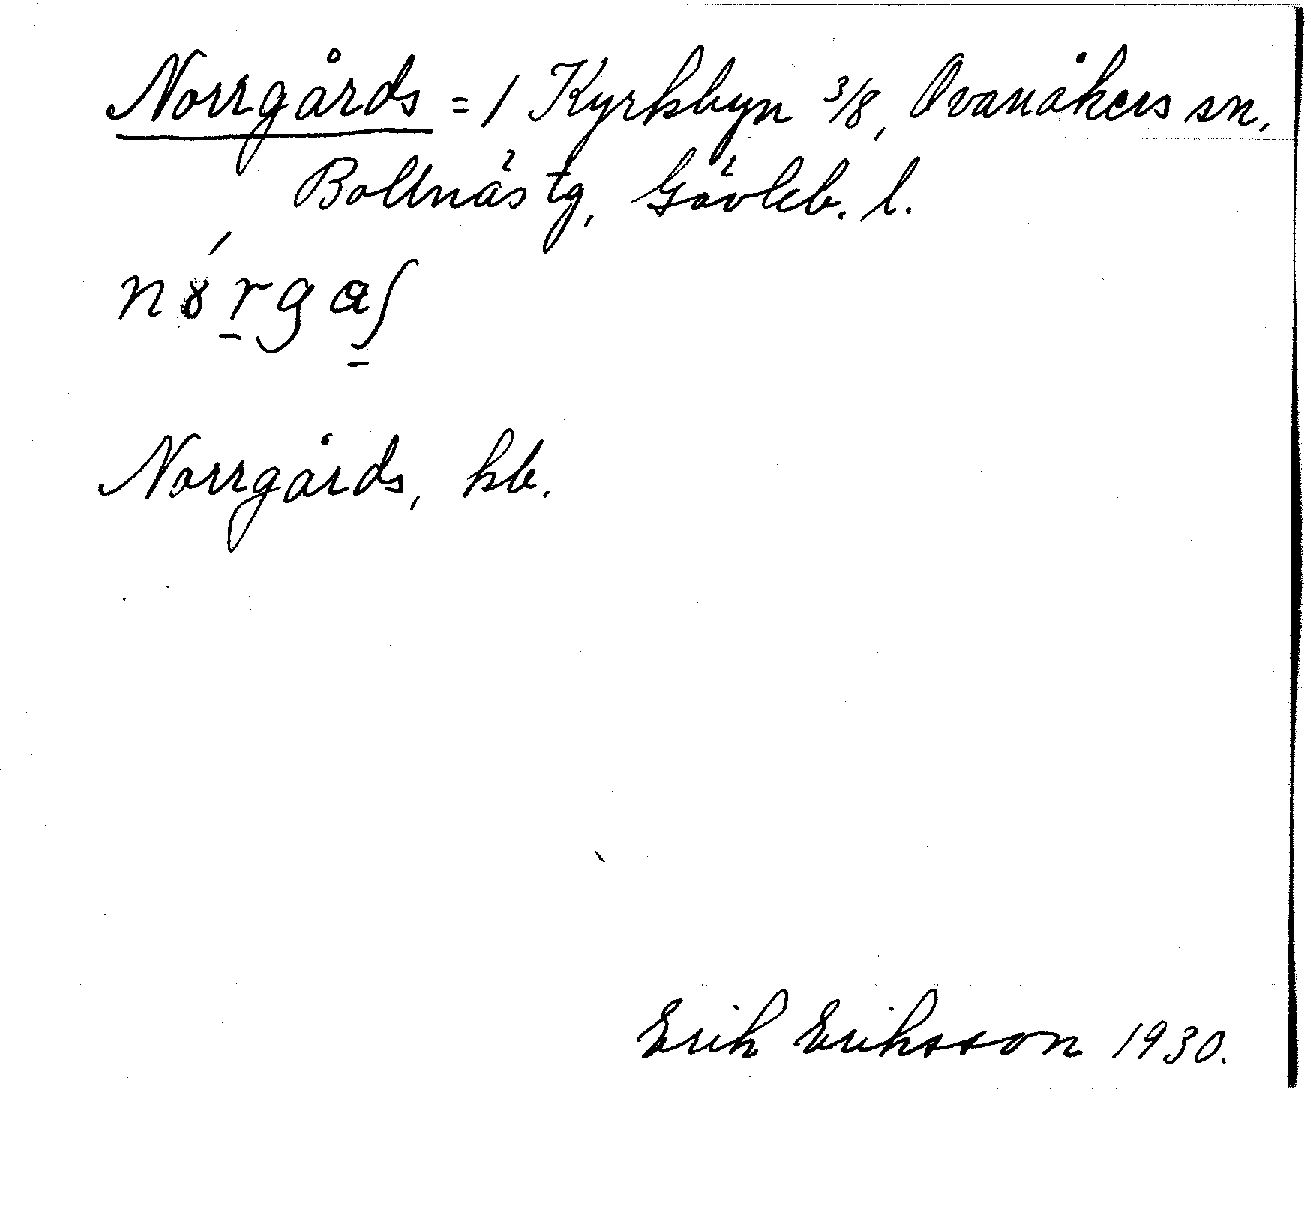 Norrgårds = 1 Kyrkbyn 3/8, Ovanåkers sn,
Bollnäs tg, Gävleb. l.
Norrgårds, kb.
Erik Eriksson 1930.